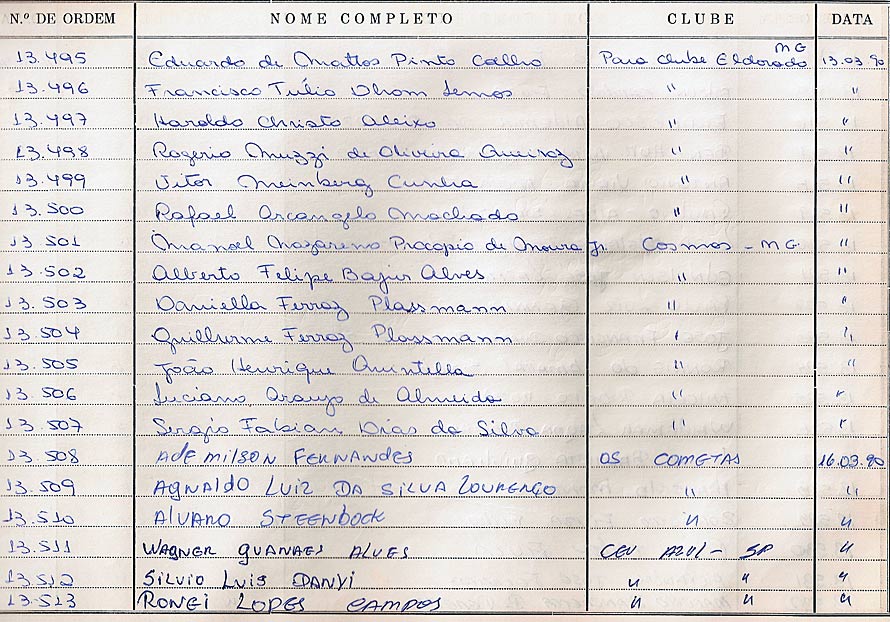 N.º DE ORDEM NOME COMPLETO CLUBE DATA
13.495 Eduardo de Mattos Pinto Coelho Para Clube Eldorado MG 13.03.90
13.496 Francisco Túlio Dhom Lemos " "
13.497 Haroldo Christo Aleixo " "
13.498 Rogerio Muzzi de Oliveira Queiroz " "
13.499 Vitor Meinberg Cunha " "
13.500 Rafael Arcangelo Machado " "
13 501 Manoel Nazareno Procopio de Moura Jr. Cosmos - MG "
13.502 Alberto Felipe Alves " "
13.503 Daniella Ferraz Plassmann " "
13.504 Guilherme Ferraz Plassmann " "
13.505 João Henrique Quintella " "
13.506 Luciano Araujo de Almeida " "
13.507 Sergio Fabian Dias da Silva " "
13.508 ADEMILSON FERNANDES OS COMETAS 16.03.90
13.509 AGNALDO LUIZ DA SILVA LOURENÇO " "
13.510 ALVARO STEENBOCK " "
13.511 WAGNER GUANAES ALVES CEU AZUL - SP "
13.512 SILVIO LUIS DANYI " " "
13.513 RONEI LOPES CAMPOS " " "